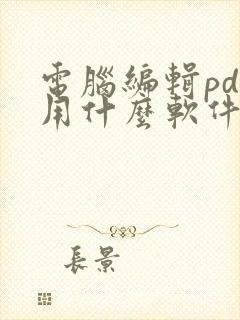 電腦編輯pd
用什麼軟件
長景